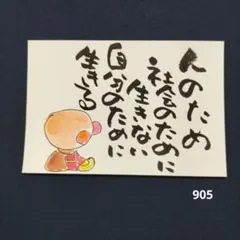 人のため
社会のために
生きない
自分のために
生きる
905